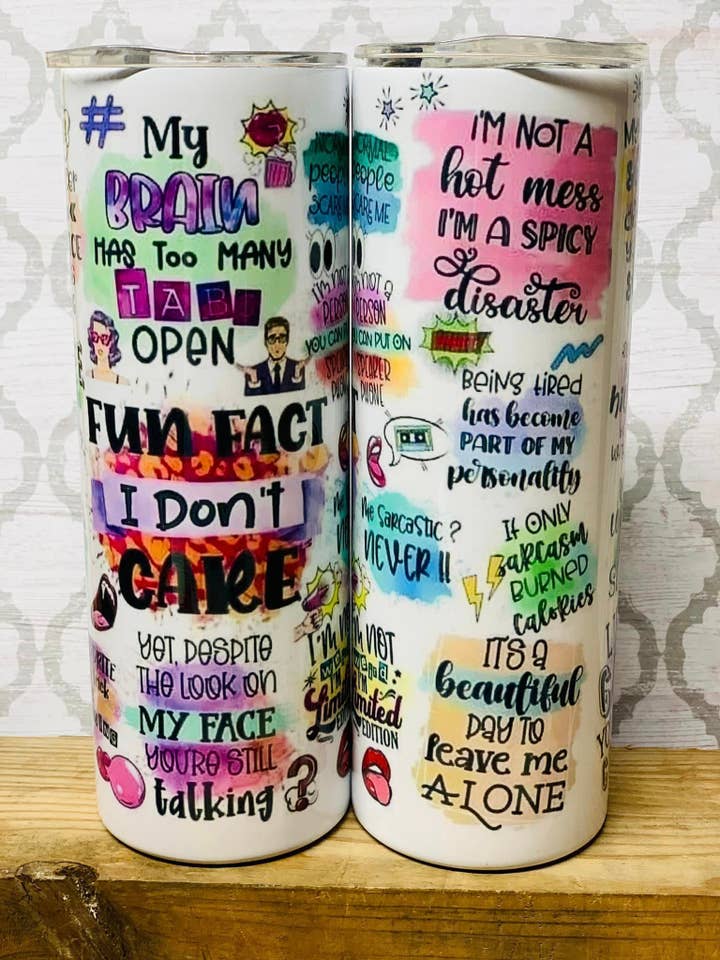 #
My
BRAIN
HAS TOO MANY
TABS
OPEN
FUN FACT
I Don't
CARE
YET DESPITE
THE LOOK ON
MY FACE
YOU'RE STILL
talking
?
NORMAL
people
SCARE ME
I'm NOT a
PERSON
YOU CAN PUT ON
SPEAKER
PHONE
Me Sarcastic?
NEVER !!
I'M NOT
weird
I'M
Limited
EDITION
I'M NOT A
hot mess
I'M A SPICY
disaster
BEING tiRED
has become
PART OF MY
personality
If ONLY
sarcasm
BURNED
calories
IT'S a
beautiful
DAY TO
leave me
ALONE